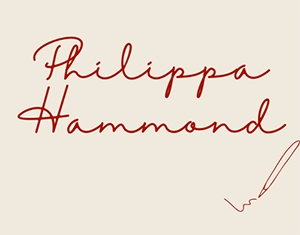 Philippa
Hammond